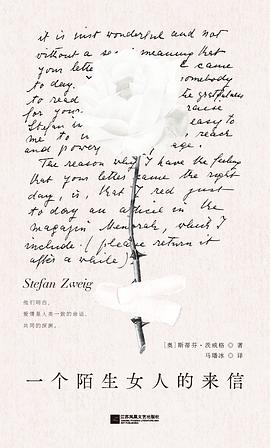 it is just wonderful and not
without a se meaning that
your lette came
to day. somebody
to read the gratefulness
for your raise
Stefan in easy to
me to reach
and power age.
The reason why I have the feeling
that your letter came the right
day, is, that I red just
to day an article in the
magazin Menorah, which I
include. (please return it
after a while)
Stefan Zweig
他们明白，
爱情是人类一致的命运，
共同的深渊。
[奥]斯蒂芬·茨威格 ◎ 著
马璠冰 ◎ 译
一个陌生女人的来信
江苏凤凰文艺出版社